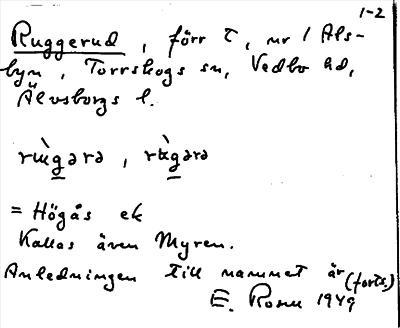 1-2
Ruggerud, förr t, nr 1 Äls-
byn, Torrskogs sn, Vedbo hd,
Älvsborgs l.
= Högås ek
Kallas även Myren.
Anledningen till namnet är (forts.)
E. Rosen 1949